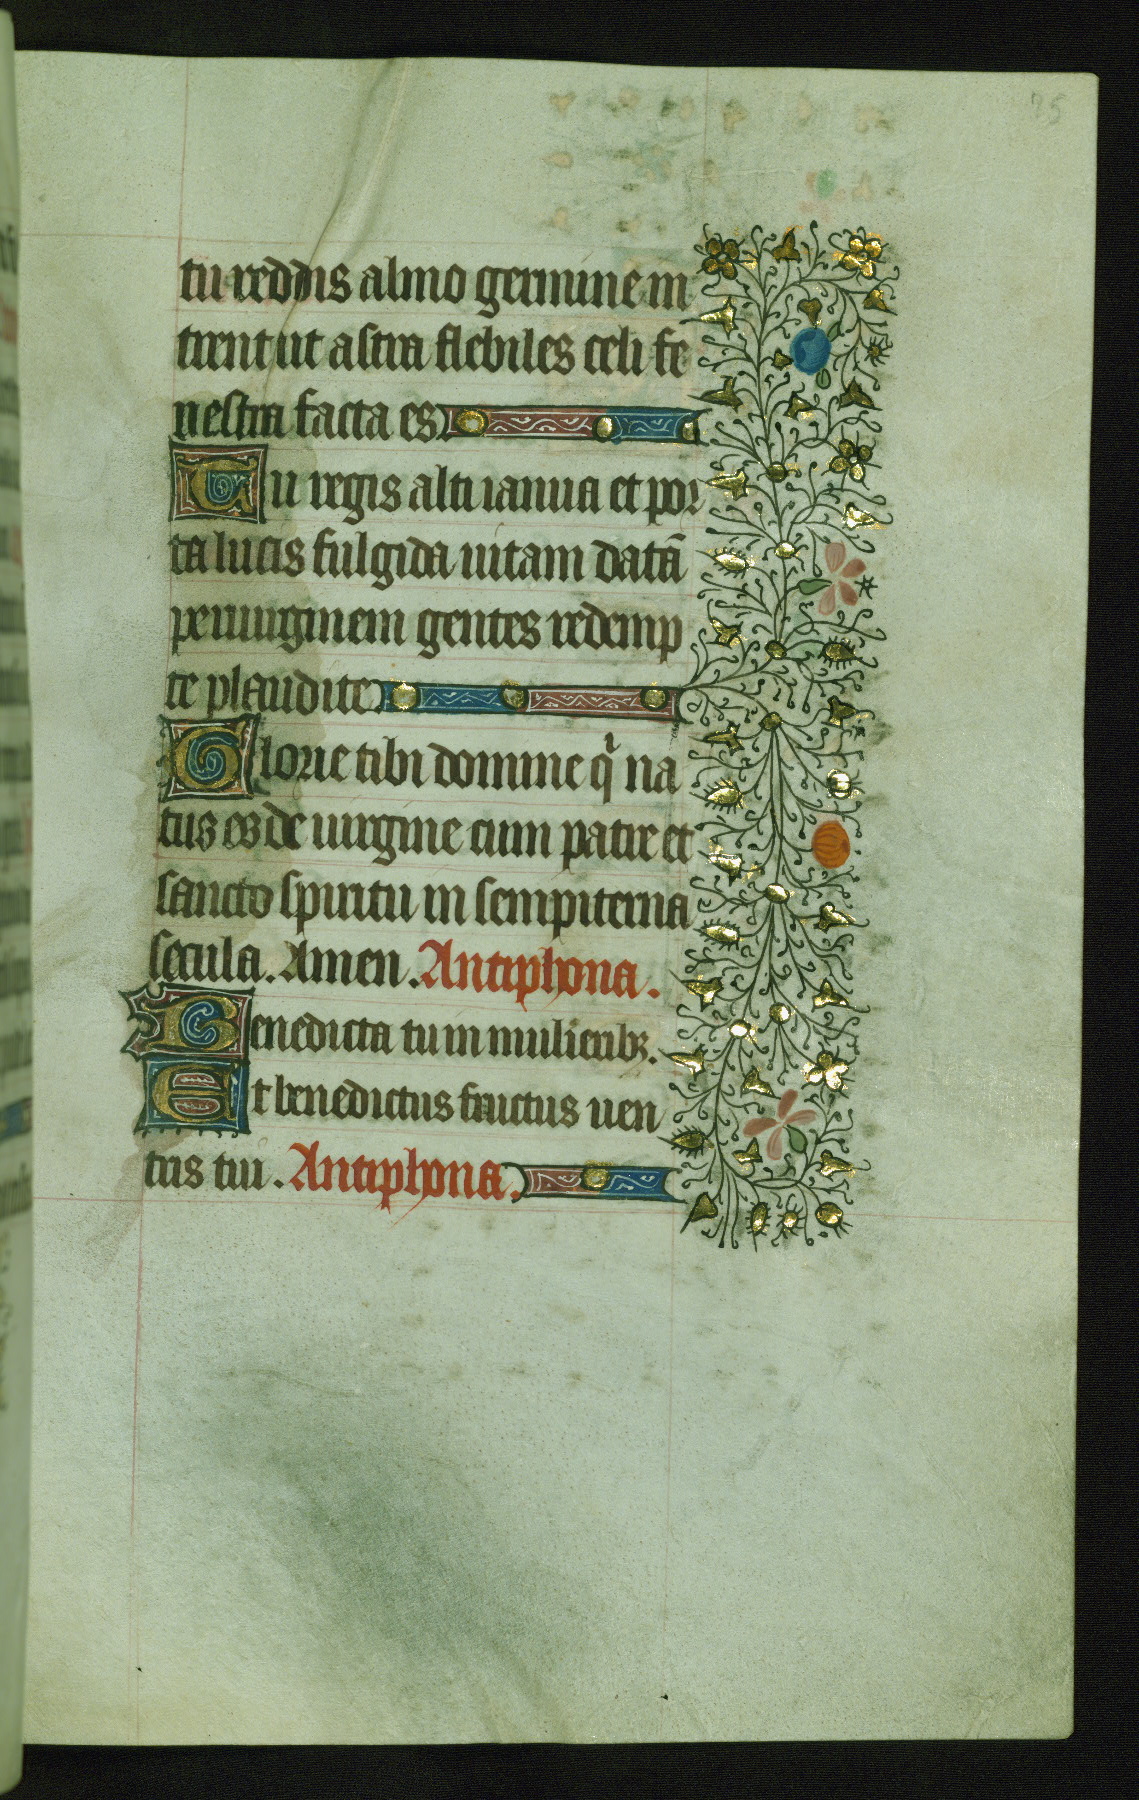 75
tu reddis almo germine in
trent ut astra flebiles celi fe
nestra facta es
Tu regis alti ianua et por
ta lucis fulgida uitam datā
per uirginem gentes redemp
te plaudite
Glorie tibi domine qͥ na
tus es de uirgine cum patre et
sancto spiritu in sempiterna
secula. Amen. Antiphona.
Benedicta tu in mulieribꝫ.
Et benedictus fructus uen
tris tui. Antiphona.